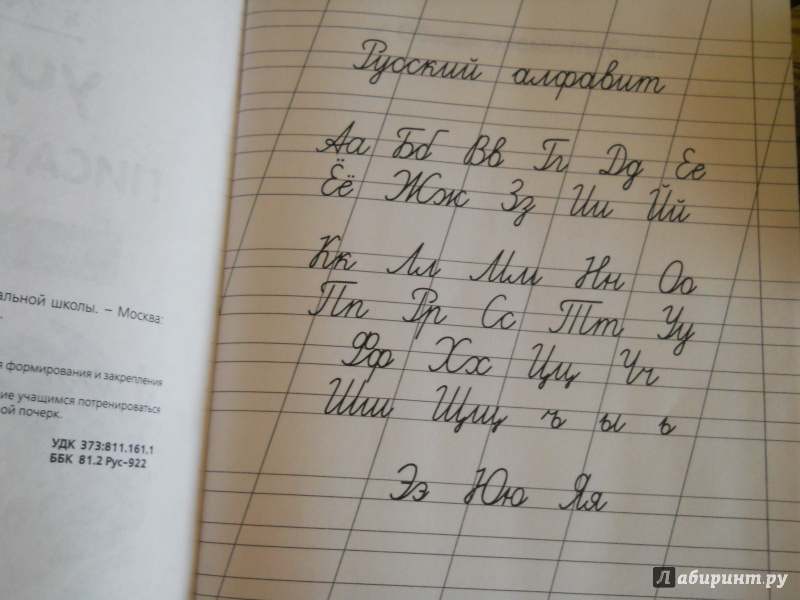 Русский алфавит
Аа Бб Вв Гг Дд Ее
Ёё Жж Зз Ии Йй
Кк Лл Мм Нн Оо
Пп Рр Сс Тт Уу
Фф Хх Цц Чч
Шш Щщ ъ ы ь
Ээ Юю Яя
альной школы. – Москва:
я формирования и закрепления
ие учащимся потренироваться
ой почерк.
УДК 373:811.161.1
ББК 81.2 Рус-922
Лабиринт.ру